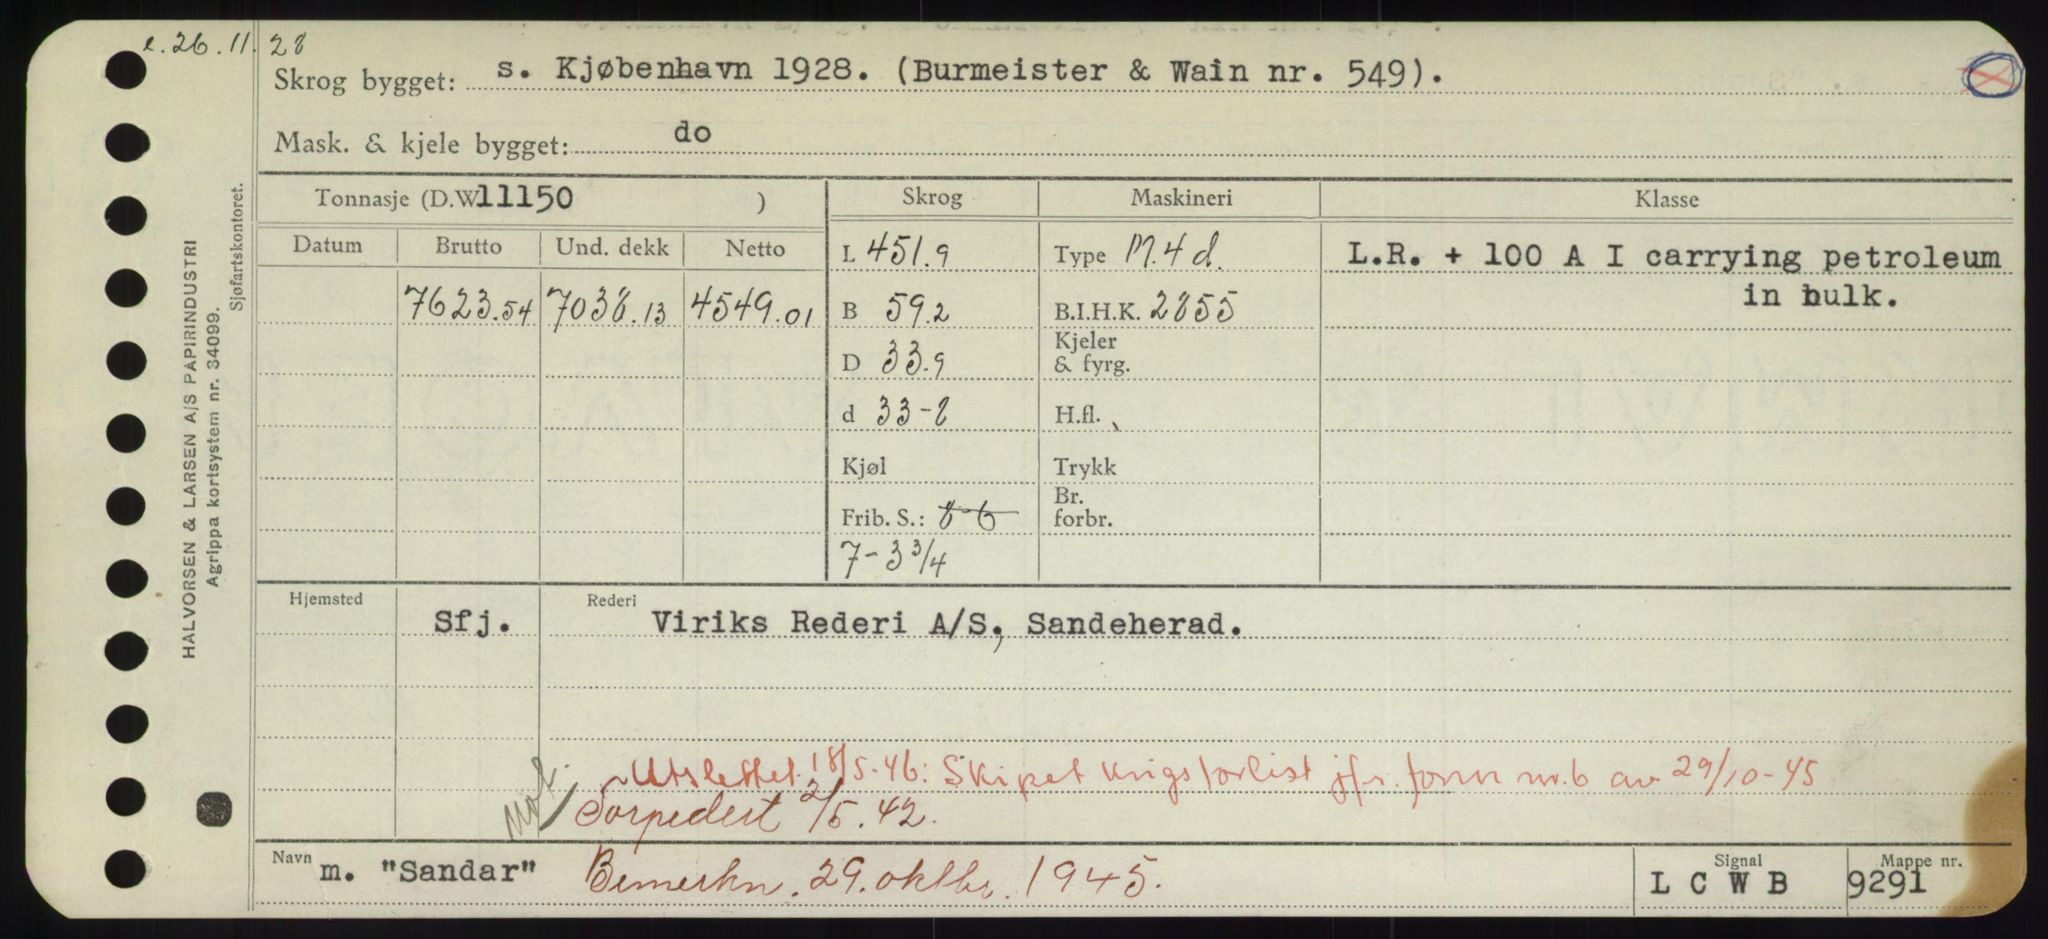 e. 26.11.28
Skrog bygget: s. Kjøbenhavn 1928. (Burmeister & Wain nr. 549).
Mask. & kjele bygget: do
Tonnasje (D.W 11150 ) Skrog Maskineri Klasse
Datum Brutto Und. dekk Netto L 451.9 Type M. 4 d. L.R. + 100 A I carrying petroleum
in bulk.
7623.54 7038.13 4549.01 B 59.2 B.I.H.K. 2855
D 33.9 Kjeler
& fyrg.
d 33-8 H.fl.
Kjøl Trykk
Frib. S.: 8-6 Br.
forbr.
7-3 3/4
Hjemsted Rederi
Sfj. Viriks Rederi A/S, Sandeherad.
Utslettet 18/5-46: Skipet krigsforlist jfr. form nr. 6 av 29/10-45
Torpedert 2/5.42.
Navn m. "Sandar" Bemerkn. 29. oktbr. 1945. Signal L C W B Mappe nr. 9291
HALVORSEN & LARSEN A/S PAPIRINDUSTRI
Agrippa kortsystem nr. 34099.
Sjøfartskontoret.